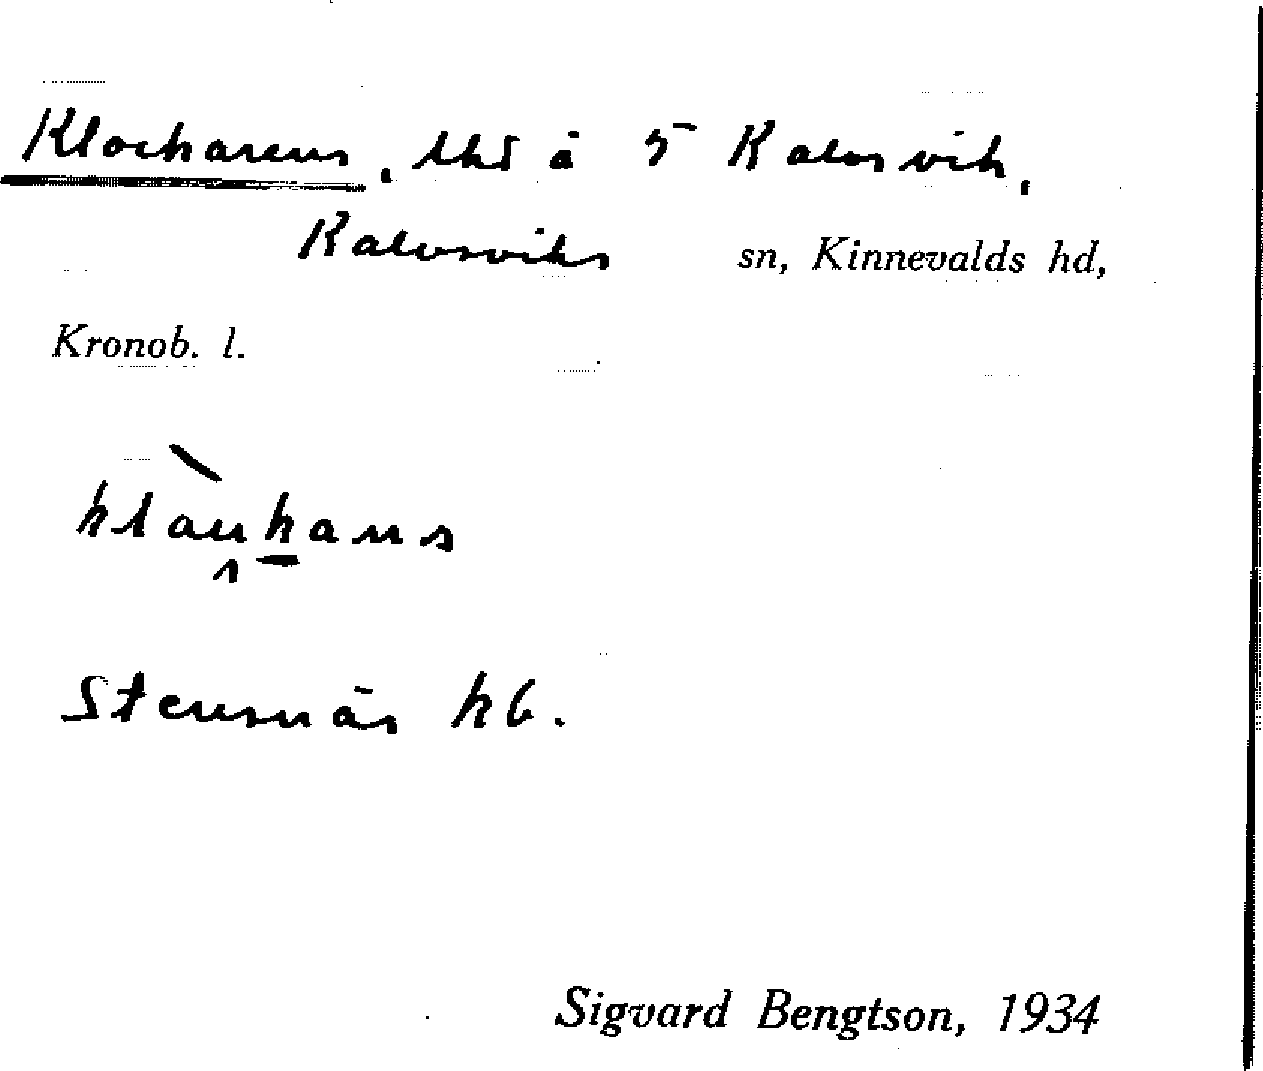 Klockarens, lhs å 5 Kalvsvik,
Kalvsviks sn, Kinnevalds hd,
Kronob. l.
Stensnäs kb.
Sigvard Bengtson, 1934